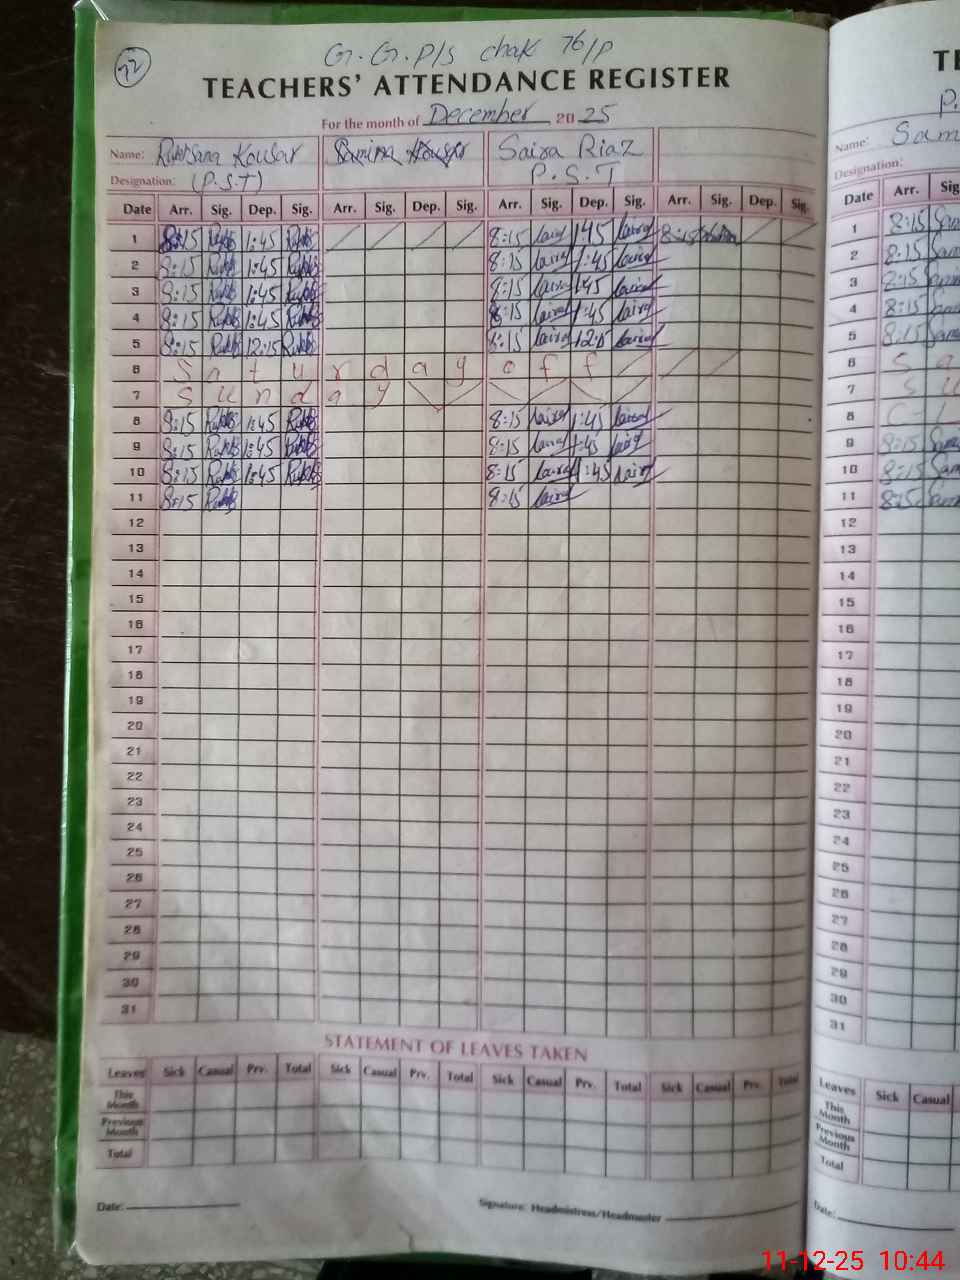 22
G.G.P/S chak 76/P
TEACHERS' ATTENDANCE REGISTER
For the month of December 2025
Name: Rukhsana Kousar Samina Kousar Saira Riaz
Designation: (P.S.T) P.S.T
Date Arr. Sig. Dep. Sig. Arr. Sig. Dep. Sig. Arr. Sig. Dep. Sig. Arr. Sig. Dep. Sig.
1 8:15 1:45 8:15 1:45 8:15
2 8:15 1:45 8:15 1:45
3 8:15 1:45 8:15 1:45
4 8:15 1:45 8:15 1:45
5 8:15 12:15 8:15 12:15
6 S a t u r d a y o f f
7 S u n d a y
8 8:15 1:45 8:15 1:45
9 8:15 1:45 8:15 1:45
10 8:15 1:45 8:15 1:45
11 8:15 8:15
12
13
14
15
16
17
18
19
20
21
22
23
24
25
26
27
28
29
30
31
STATEMENT OF LEAVES TAKEN
Leaves Sick Casual Prv. Total Sick Casual Prv. Total Sick Casual Prv. Total Sick Casual Prv. Total
This Month
Previous Month
Total
Date: Signature: Headmistress/Headmaster
TE
P.
Name: Sam
Designation:
Date Arr. Sig
1 8:15
2 8:15
3 8:15
4 8:15
5 8:15
6 S a
7 S u
8 C-l
9 8:15
10 8:15
11 8:15
12
13
14
15
16
17
18
19
20
21
22
23
24
25
26
27
28
29
30
31
Leaves Sick Casual
This Month
Previous Month
Total
Date:
11-12-25 10:44